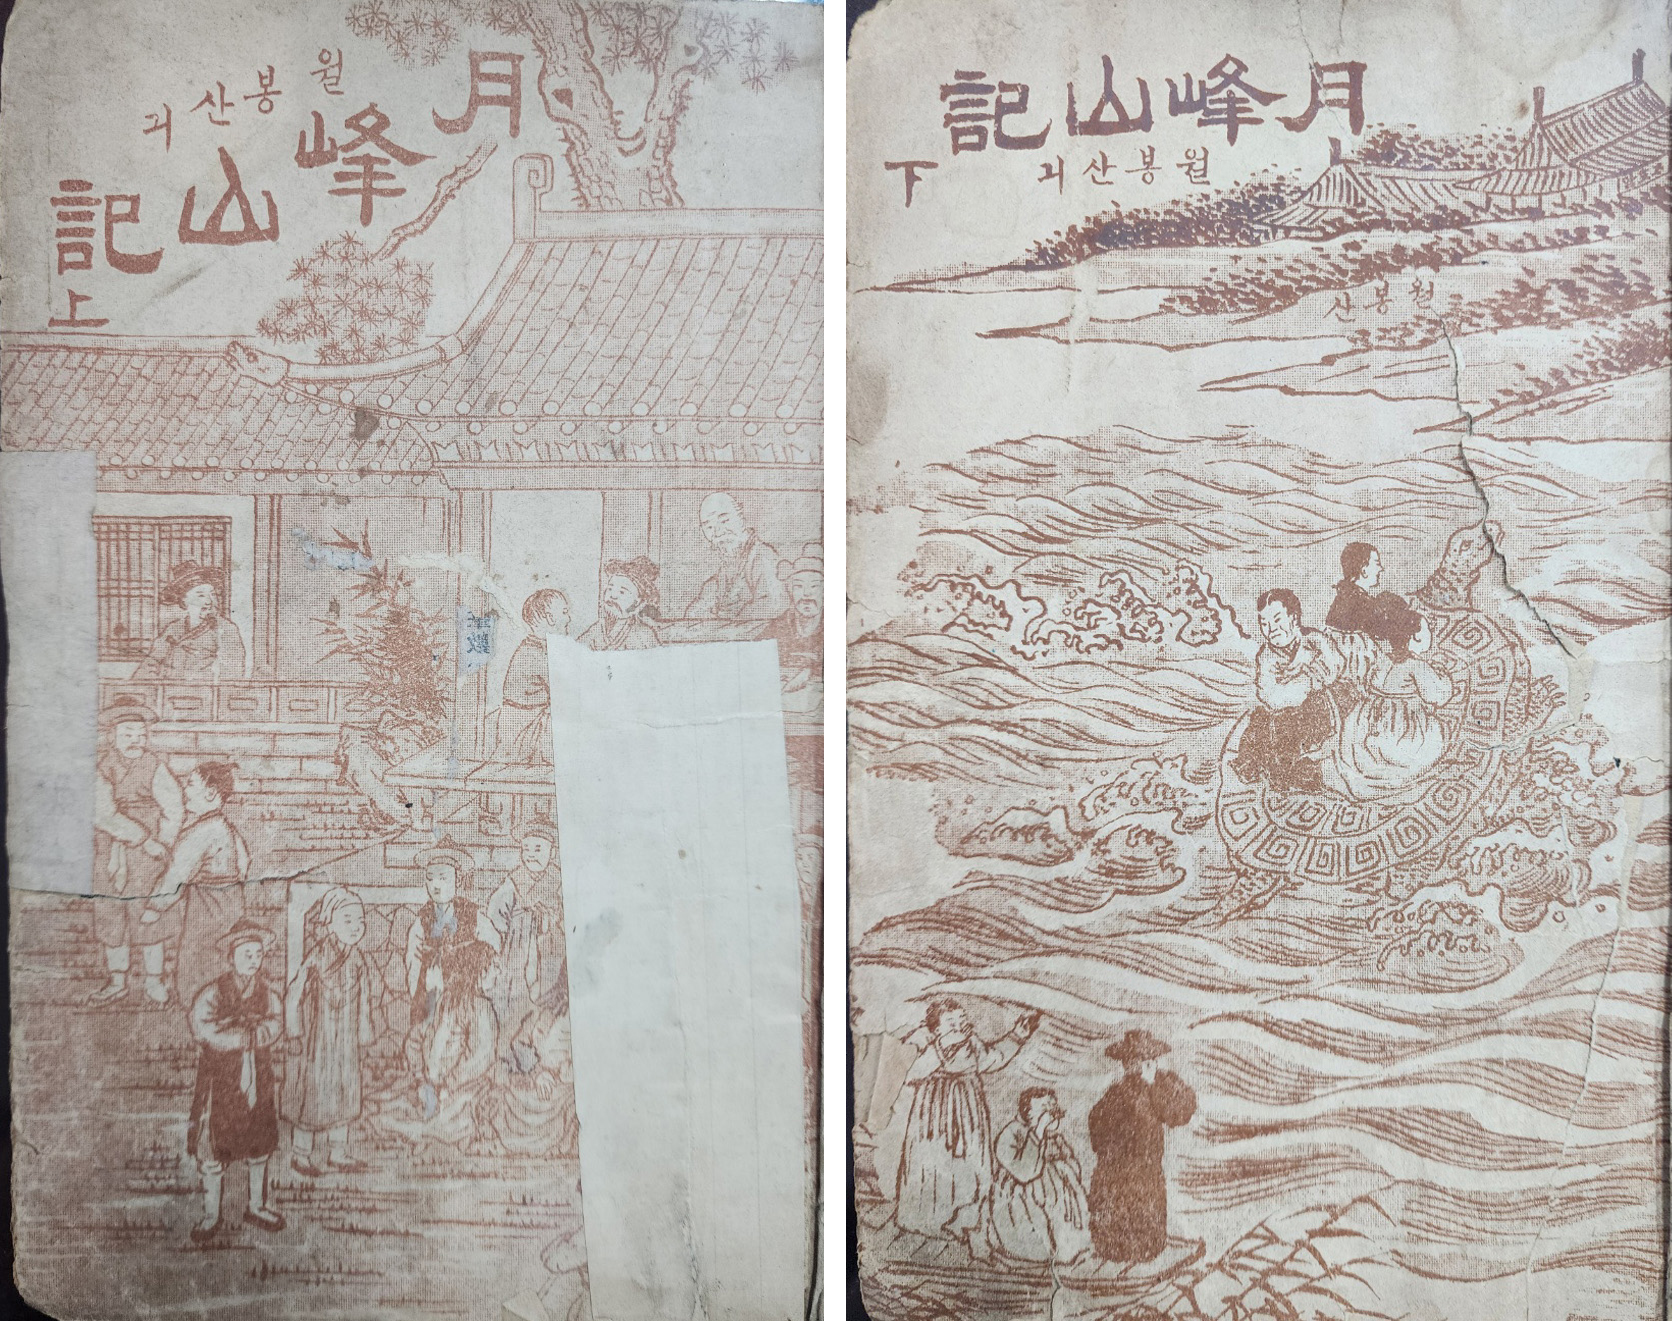 月峰山記
월봉산긔
上
月峰山記
월봉산긔
下
월봉산